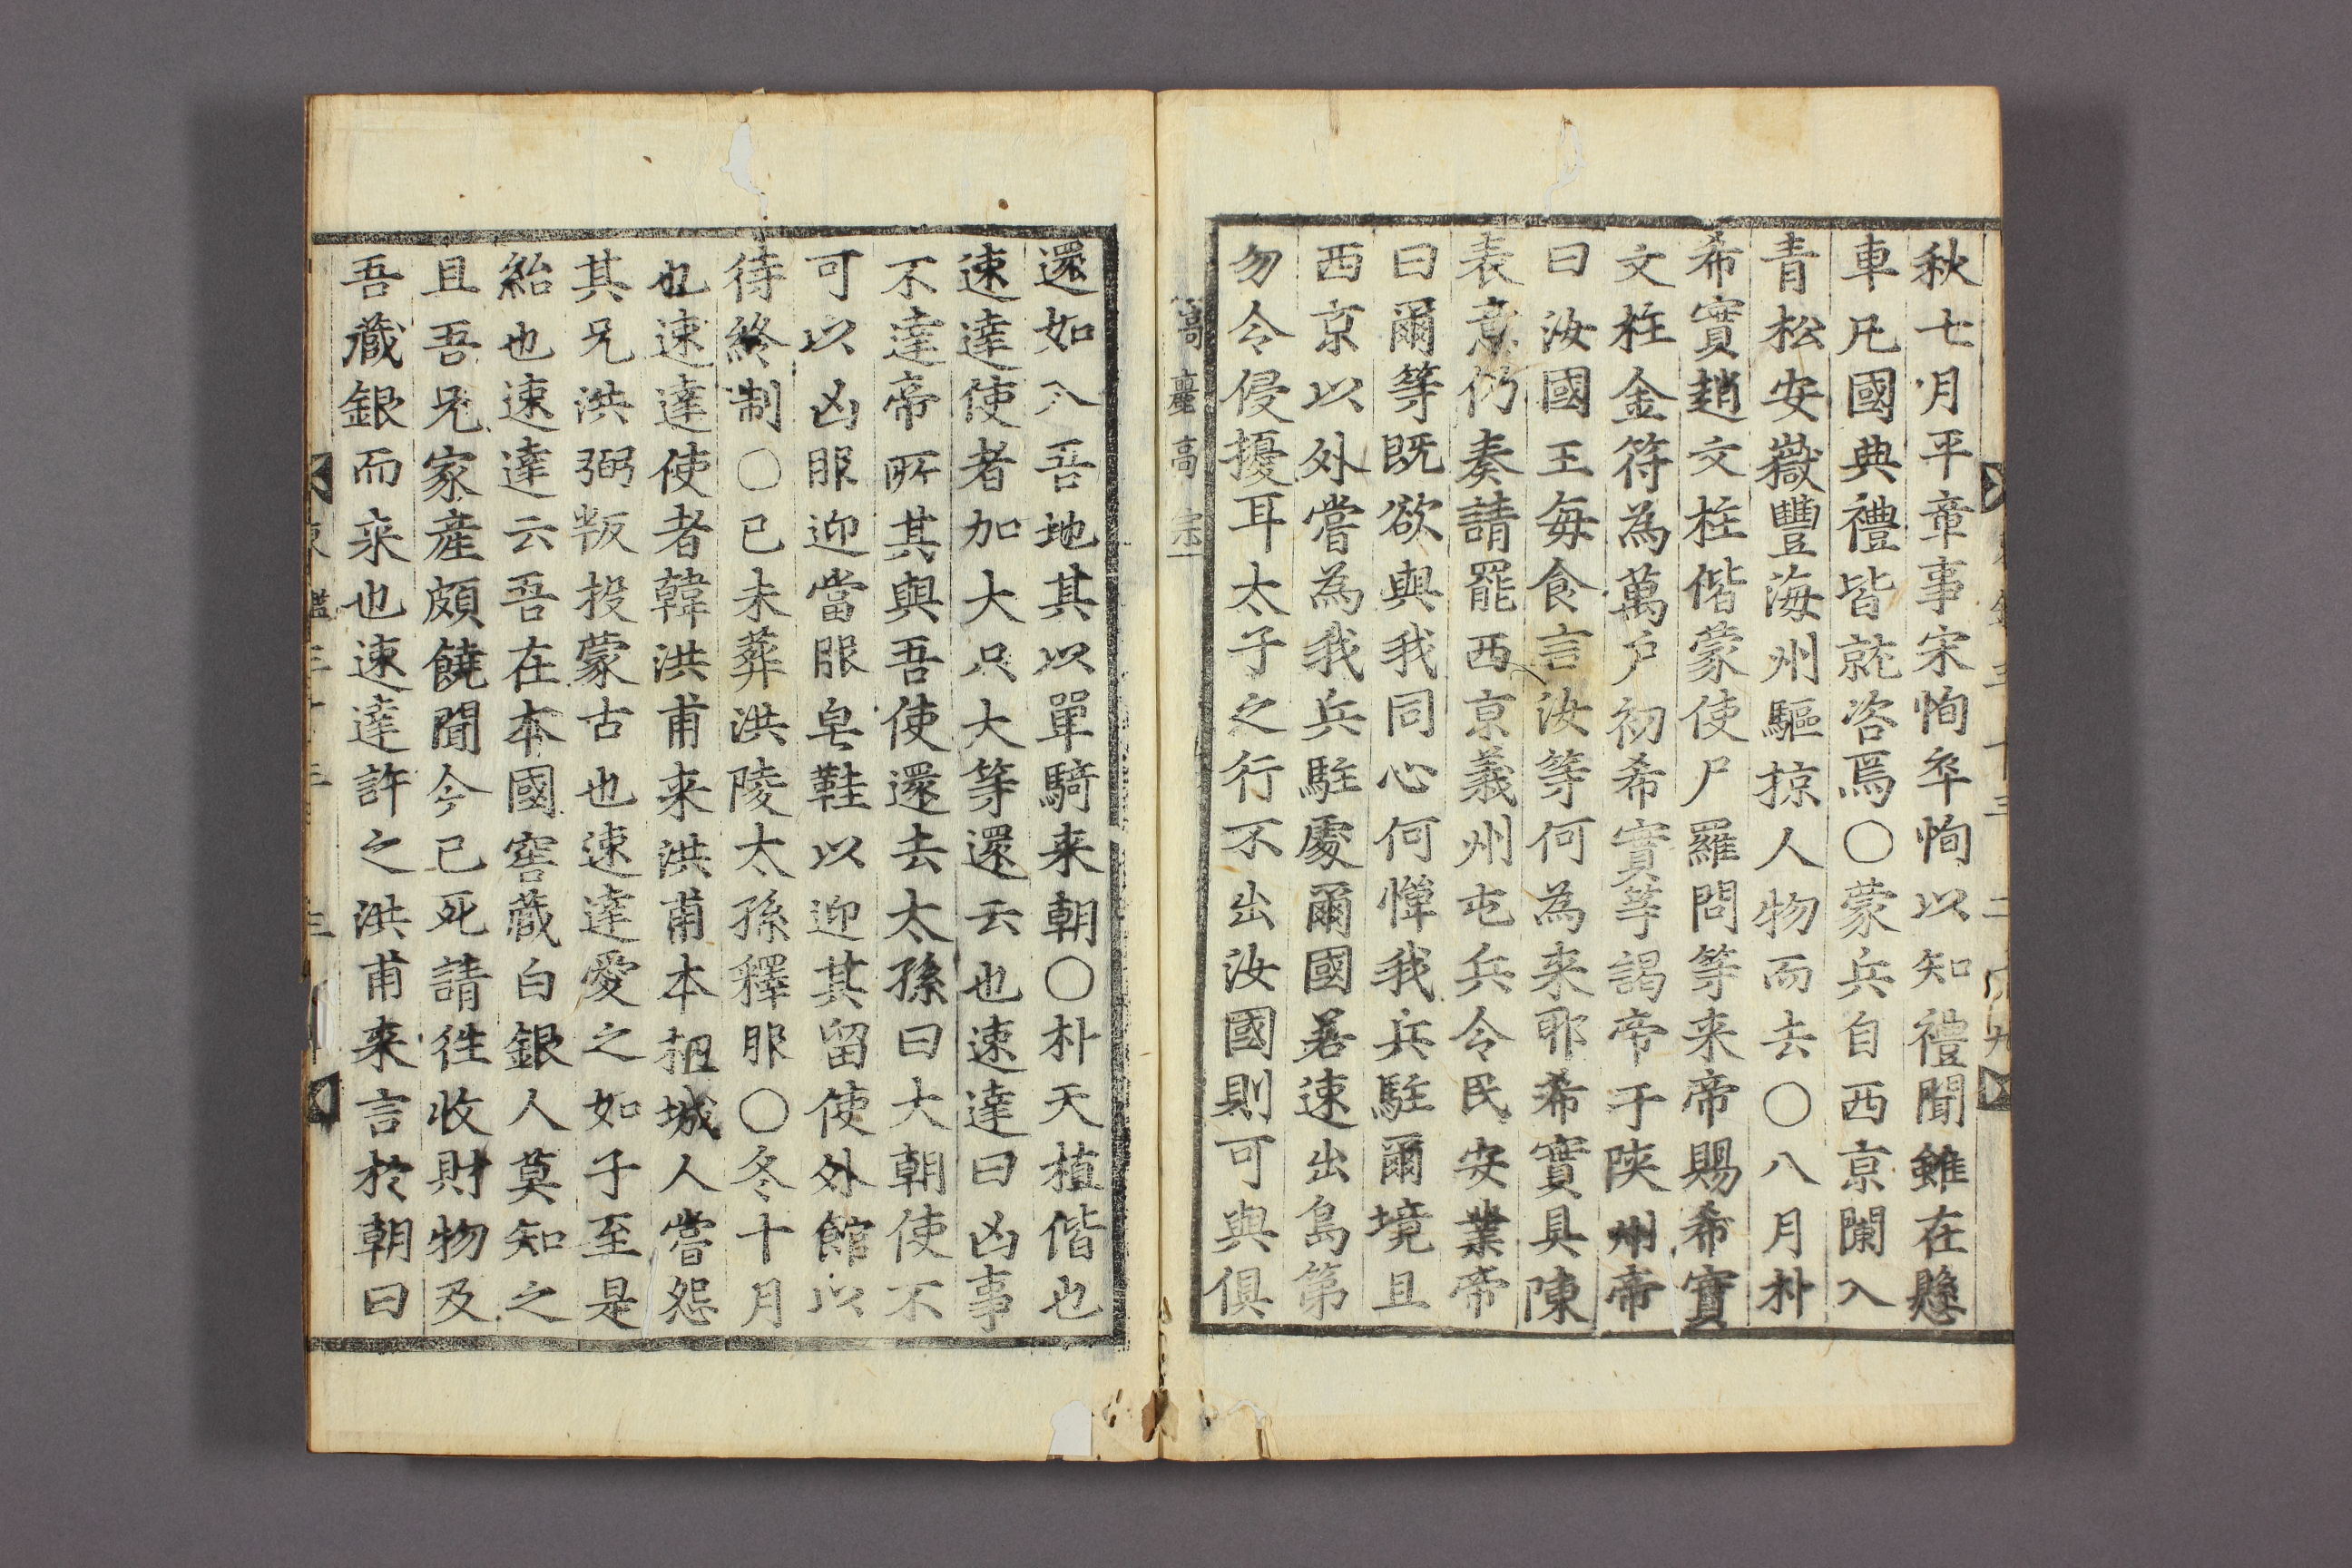 秋七月平章事宋恂卒恂以知禮聞雖在懸
車凡國典禮皆就咨焉○蒙兵自西京闌入
青松安嶽豐海州驅掠人物而去○八月朴
希實趙文柱偕蒙使尸羅問等来帝賜希實
文柱金符為萬戶初希實等謁帝于陝州帝
曰汝國王每食言汝等何為来耶希實具陳
表意仍奏請罷西京義州屯兵令民安業帝
曰爾等既欲與我同心何憚我兵駐爾境且
西京以外嘗為我兵駐處爾國若速出島第
勿令侵擾耳太子之行不出汝國則可與俱
高慶高宗
還如入吾地其以單騎来朝○朴天植偕也
速達使者加大只大等還云也速達曰凶事
不達帝所其與吾使還去太孫曰大朝使不
可以凶服迎當服皂鞋以迎其留使外館以
待終制○已未葬洪陵太孫釋服○冬十月
也速達使者韓洪甫来洪甫本抯城人嘗怨
其兄洪弼叛投蒙古也速達愛之如子至是
紿也速達云吾在本國窖蔵白銀人莫知之
且吾兄家産頗饒聞今已死請徃收財物及
吾蔵銀而来也速達許之洪甫来言於朝曰